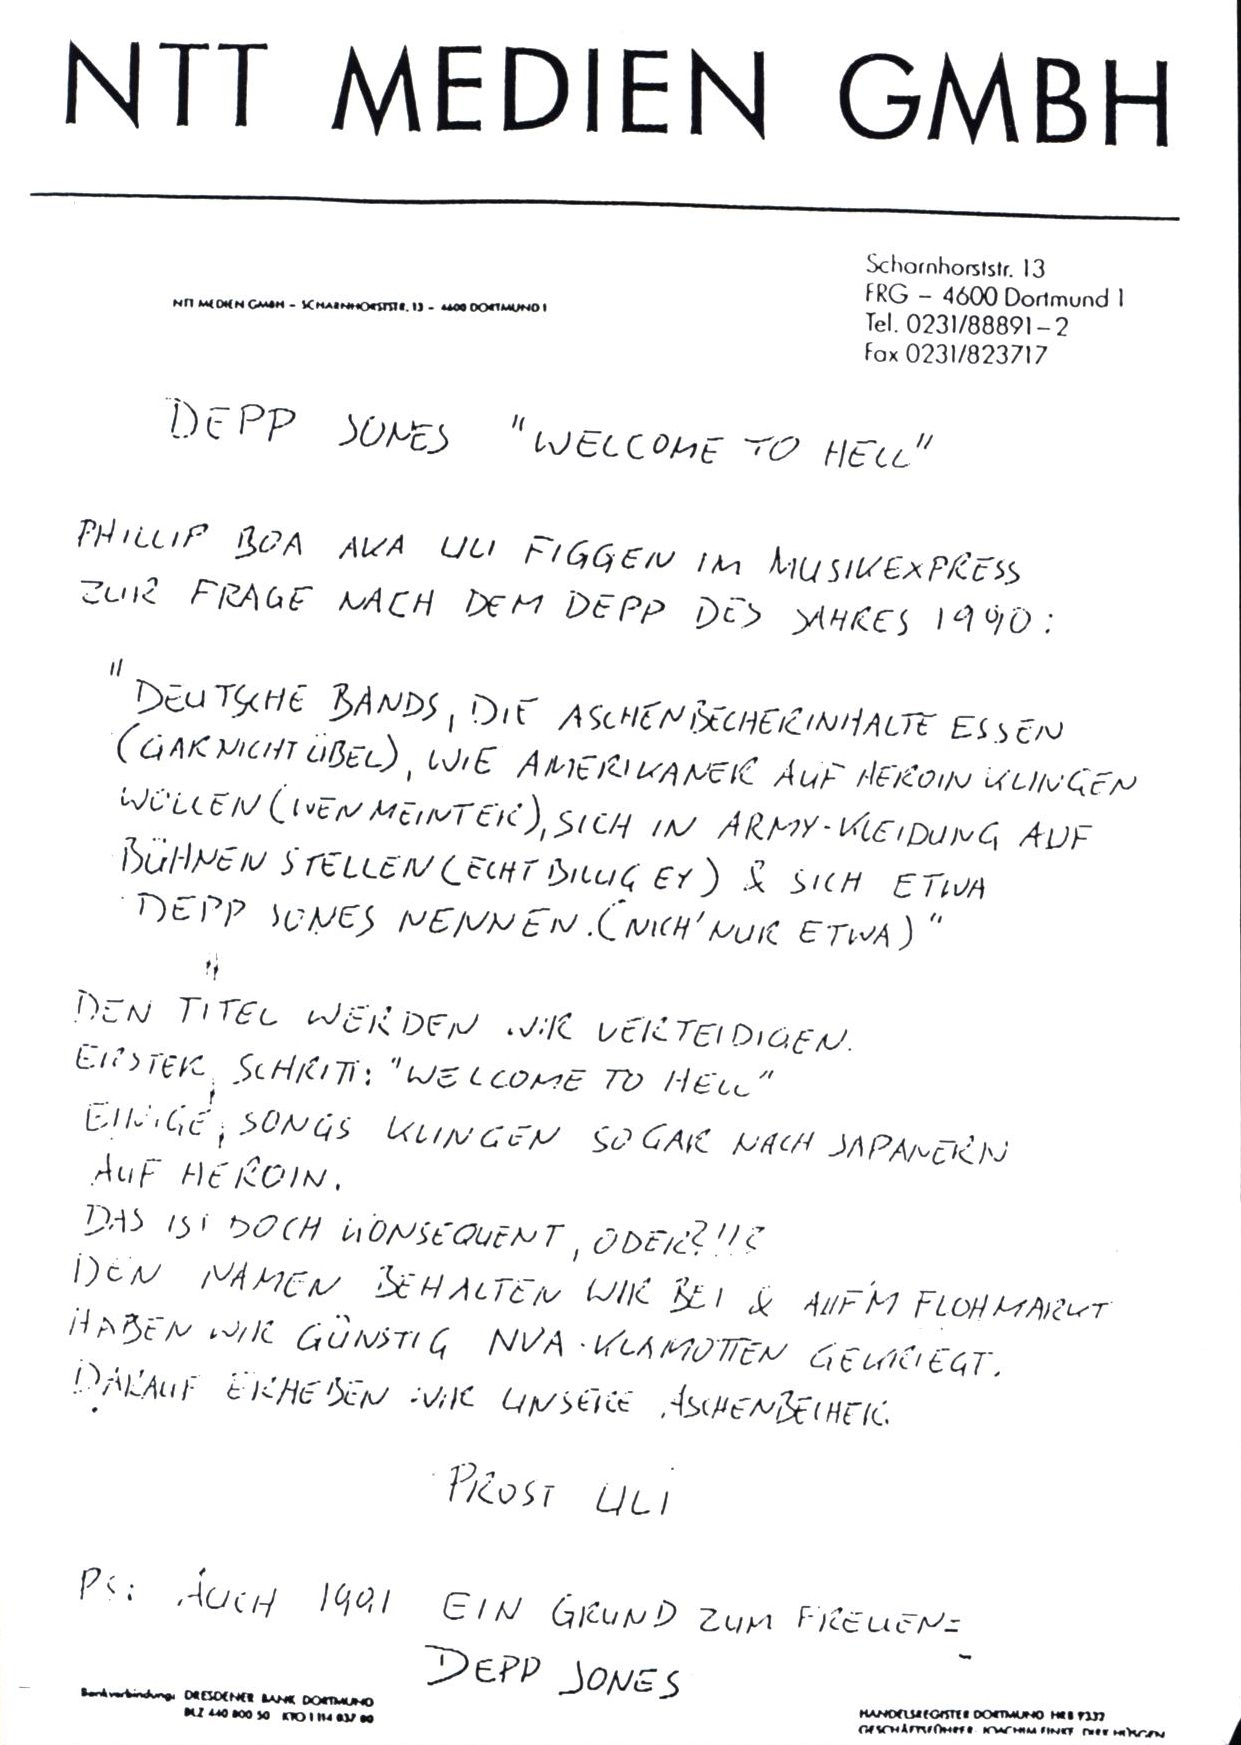 NTT MEDIEN GMBH
NTT MEDIEN GMBH – SCHARNHORSTSTR. 13 – 4600 DORTMUND 1
Scharnhorststr. 13
FRG – 4600 Dortmund 1
Tel. 0231/88891–2
Fax 0231/823717
DEPP JONES "WELCOME TO HELL"
PHILLIP BOA AKA ULI FIGGEN IM MUSIKEXPRESS
ZUR FRAGE NACH DEM DEPP DES JAHRES 1990:
"DEUTSCHE BANDS, DIE ASCHENBECHERINHALTE ESSEN
(GARNICHT ÜBEL), WIE AMERIKANER AUF HEROIN KLINGEN
WOLLEN (WEN MEINT ER), SICH IN ARMY-KLEIDUNG AUF
BÜHNEN STELLEN (ECHT BILLIG EY) & SICH ETWA
DEPP JONES NENNEN. (NICH' NUR ETWA)"
DEN TITEL WERDEN WIR VERTEIDIGEN.
ERSTER SCHRITT: "WELCOME TO HELL"
EINIGE SONGS KLINGEN SOGAR NACH JAPANERN
AUF HEROIN.
DAS IST DOCH KONSEQUENT, ODER?!!?
DEN NAMEN BEHALTEN WIR BEI & AUF'M FLOHMARKT
HABEN WIR GÜNSTIG NVA-KLAMOTTEN GEKRIEGT.
DARAUF ERHEBEN WIR UNSERE ASCHENBECHER.
PROST ULI
PS: AUCH 1991 EIN GRUND ZUM FREUEN=
DEPP JONES
Bankverbindung: DRESDENER BANK DORTMUND
BLZ 440 800 50 KTO 1 114 837 00
HANDELSREGISTER DORTMUND HRB 9337
GESCHÄFTSFÜHRER: JOACHIM